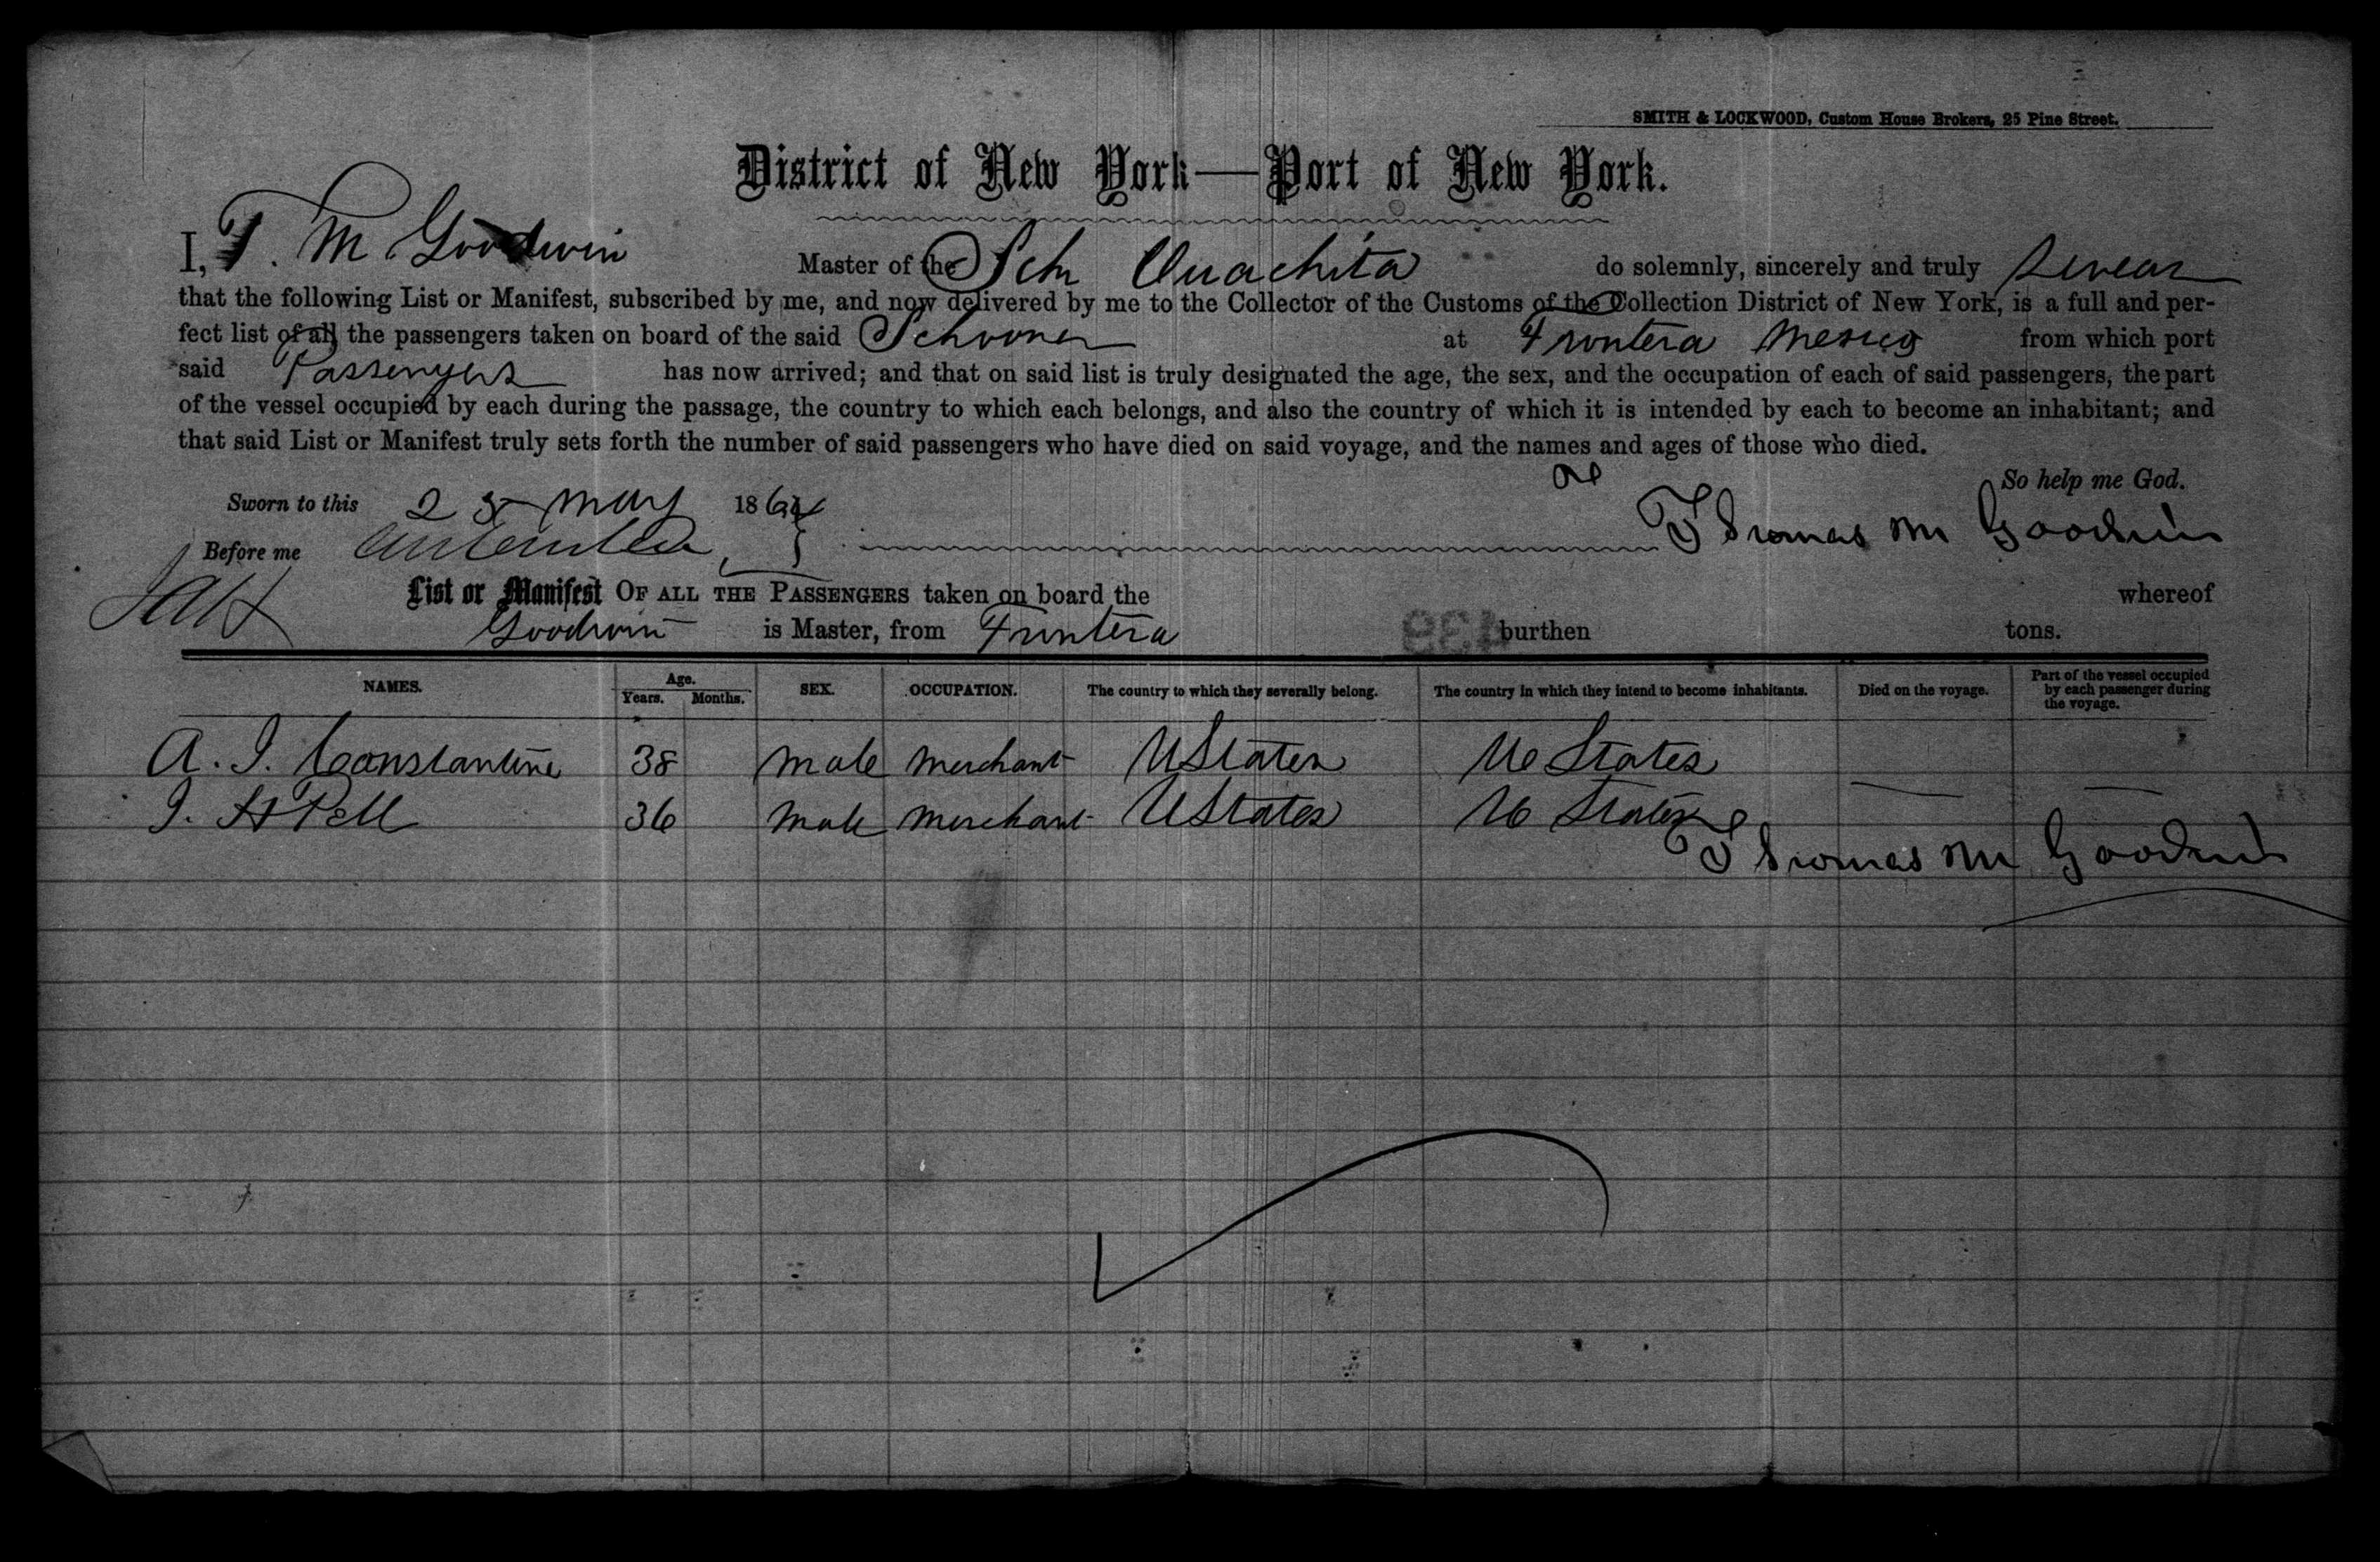 SMITH & LOCKWOOD, Custom House Brokers, 25 Pine Street.
District of New York—Port of New York.
I, T. M Goodwin Master of the Sch Ouachita do solemnly, sincerely and truly swear
that the following List or Manifest, subscribed by me, and now delivered by me to the Collector of the Customs of the Collection District of New York, is a full and per-
fect list of all the passengers taken on board of the said Schooner at Frontera Mexico from which port
said Passengers has now arrived; and that on said list is truly designated the age, the sex, and the occupation of each of said passengers, the part
of the vessel occupied by each during the passage, the country to which each belongs, and also the country of which it is intended by each to become an inhabitant; and
that said List or Manifest truly sets forth the number of said passengers who have died on said voyage, and the names and ages of those who died.
So help me God.
Sworn to this 25 May 186
Thomas M Goodwin
Before me
List or Manifest OF ALL THE PASSENGERS taken on board the whereof
Goodwin is Master, from Frontera burthen tons.
NAMES. Age. Years. Months. SEX. OCCUPATION. The country to which they severally belong. The country in which they intend to become inhabitants. Died on the voyage. Part of the vessel occupied by each passenger during the voyage.
A. J. Constantine 38 male merchant UStates U States
J. H Pell 36 male merchant UStates U States
Thomas M Goodwin